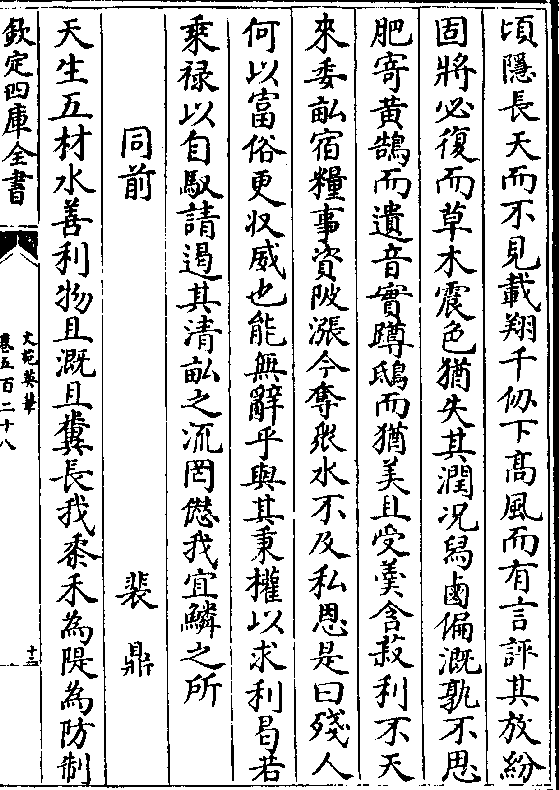 頃隱長天而不見載翔千仞下髙風而有言評其放紛
固將必復而草木震色猶失其潤况舄鹵偏溉孰不思
肥寄黄鵠而遺音實蹲鴟而猶美且受羮含菽利不天
來委畆宿糧事資陂漲今奪衆水不及私恩是曰殘人
何以富俗更収威也能無辭乎與其秉權以求利曷若
乘禄以自馭請遏其清畆之流罔愆我宜鱗之所
同前　裴鼎
天生五材水善利物且溉且糞長我黍禾為隄為防制
欽定四庫全書
文苑英華
卷五百二十八
十三